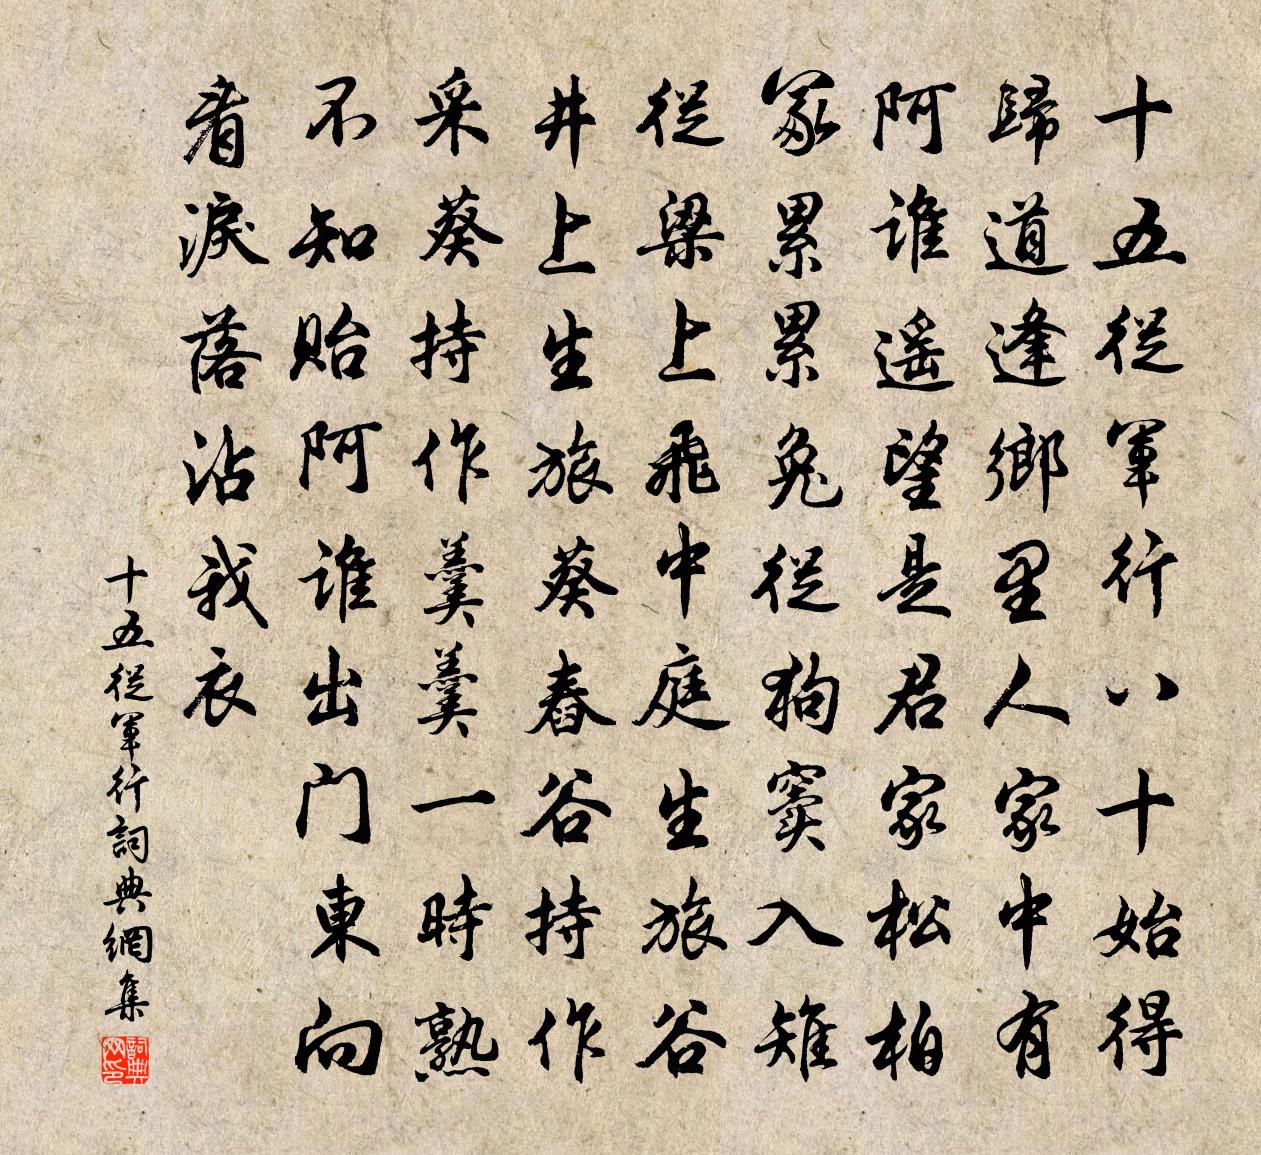 十五從軍行八十始得
歸道逢鄉里人家中有
阿誰遙望是君家松柏
冢累累兔從狗竇入雉
從梁上飛中庭生旅谷
井上生旅葵舂谷持作
采葵持作羹羹一時熟
不知貽阿誰出門東向
看淚落沾我衣
十五從軍行詞典網集
詞典网印